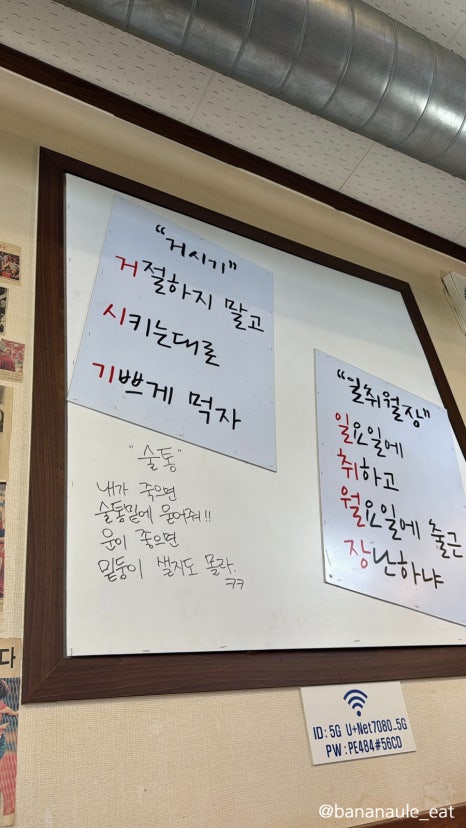 "거시기"
거절하지 말고
시키는대로
기쁘게 먹자
"술통"
내가 죽으면
술통밑에 묻어줘!!
운이 좋으면
밑둥이 샐지도 몰라.
ㅋㅋ
"일취월장"
일요일에
취하고
월요일에 출근
장난하냐
다
ID: 5G U+Net7080_5G
PW: PE484#56CD
@bananaule_eat